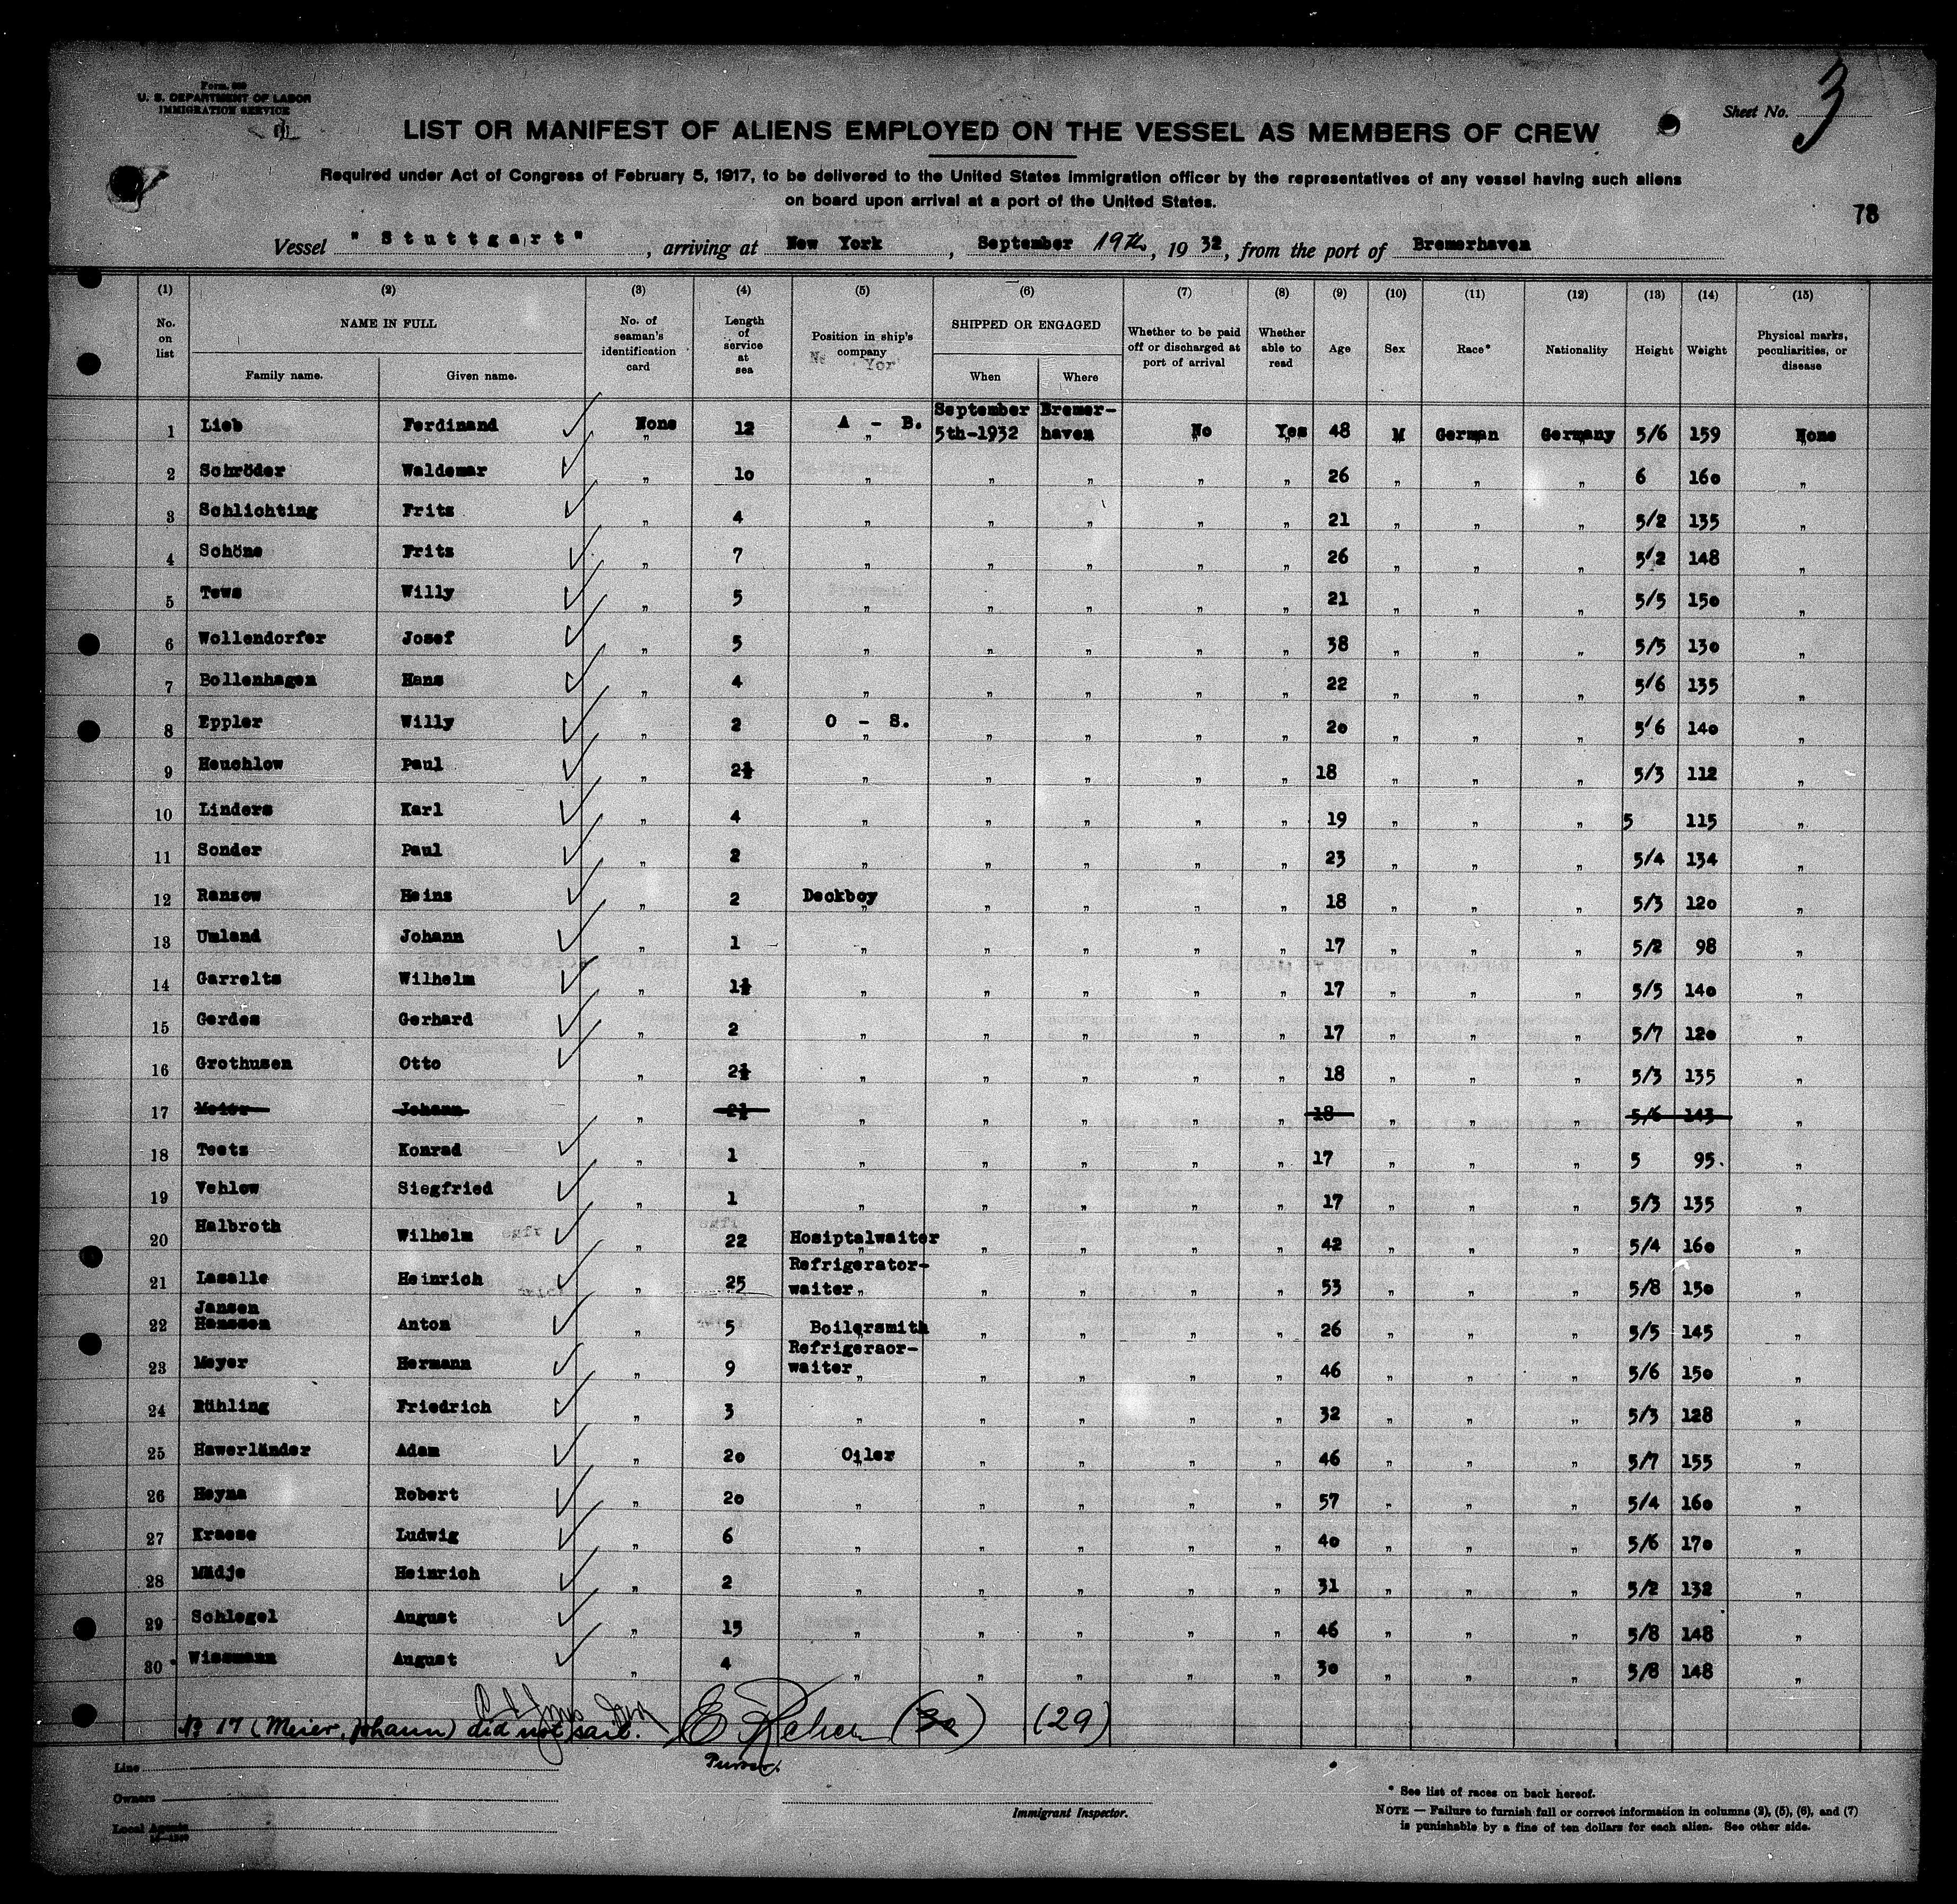 U. S. DEPARTMENT OF LABOR
IMMIGRATION SERVICE
Sheet No. 3
LIST OR MANIFEST OF ALIENS EMPLOYED ON THE VESSEL AS MEMBERS OF CREW
Required under Act of Congress of February 5, 1917, to be delivered to the United States immigration officer by the representatives of any vessel having such aliens
on board upon arrival at a port of the United States.
78
Vessel "Stuttgart", arriving at New York, September 19th, 1932, from the port of Bremerhaven
(1) (2) (3) (4) (5) (6) (7) (8) (9) (10) (11) (12) (13) (14) (15)
No. on list NAME IN FULL Family name. Given name. No. of seaman's identification card Length of service at sea Position in ship's company SHIPPED OR ENGAGED When Where Whether to be paid off or discharged at port of arrival Whether able to read Age Sex Race* Nationality Height Weight Physical marks, peculiarities, or disease
1 Lieb Ferdinand None 12 A - B. September 5th-1932 Bremer-haven No Yes 48 M German Germany 5/6 159 None
2 Schröder Waldemar " 10 " " " " " 26 " " " 6 160 "
3 Schlichting Fritz " 4 " " " " " 21 " " " 5/2 135 "
4 Schöne Fritz " 7 " " " " " 26 " " " 5/2 148 "
5 Tews Willy " 5 " " " " " 21 " " " 5/5 150 "
6 Wollendorfer Josef " 5 " " " " " 38 " " " 5/5 130 "
7 Bollenhagen Hans " 4 " " " " " 22 " " " 5/6 135 "
8 Eppler Willy " 2 O - S. " " " " 20 " " " 5/6 140 "
9 Heuchlow Paul " 2½ " " " " " 18 " " " 5/3 112 "
10 Linders Karl " 4 " " " " " 19 " " " 5 115 "
11 Sonder Paul " 2 " " " " " 23 " " " 5/4 134 "
12 Ransow Heins " 2 Deckboy " " " " 18 " " " 5/3 120 "
13 Umland Johann " 1 " " " " " 17 " " " 5/2 98 "
14 Garrelts Wilhelm " 1½ " " " " " 17 " " " 5/5 140 "
15 Gerdes Gerhard " 2 " " " " " 17 " " " 5/7 120 "
16 Grothusen Otto " 2½ " " " " " 18 " " " 5/3 135 "
17 Meier Johann " 2½ " " " " " 18 " " " 5/6 143 "
18 Teets Konrad " 1 " " " " " 17 " " " 5 95. "
19 Vehlow Siegfried " 1 " " " " " 17 " " " 5/3 135 "
20 Halbroth Wilhelm " 22 Hosiptalwaiter " " " " 42 " " " 5/4 160 "
21 Lasalle Heinrich " 25 Refrigerator-waiter " " " " 53 " " " 5/8 150 "
22 Jansen Hanssen Anton " 5 Boilersmith " " " " 26 " " " 5/5 145 "
23 Meyer Hermann " 9 Refrigeraor-waiter " " " " 46 " " " 5/6 150 "
24 Rühling Friedrich " 3 " " " " " 32 " " " 5/3 128 "
25 Hawerländer Adam " 20 Oiler " " " " 46 " " " 5/7 155 "
26 Heyna Robert " 20 " " " " " 57 " " " 5/4 160 "
27 Kraese Ludwig " 6 " " " " " 40 " " " 5/6 170 "
28 Mädje Heinrich " 2 " " " " " 31 " " " 5/2 132 "
29 Schlegel August " 15 " " " " " 46 " " " 5/8 148 "
30 Wissmann August " 4 " " " " " 30 " " " 5/8 148 "
No 17 (Meier, Johann) did not sail. (30) (29)
Purser.
Line
Owners
Local Agents
Immigrant Inspector.
* See list of races on back hereof.
NOTE — Failure to furnish full or correct information in columns (2), (5), (6), and (7)
is punishable by a fine of ten dollars for each alien. See other side.